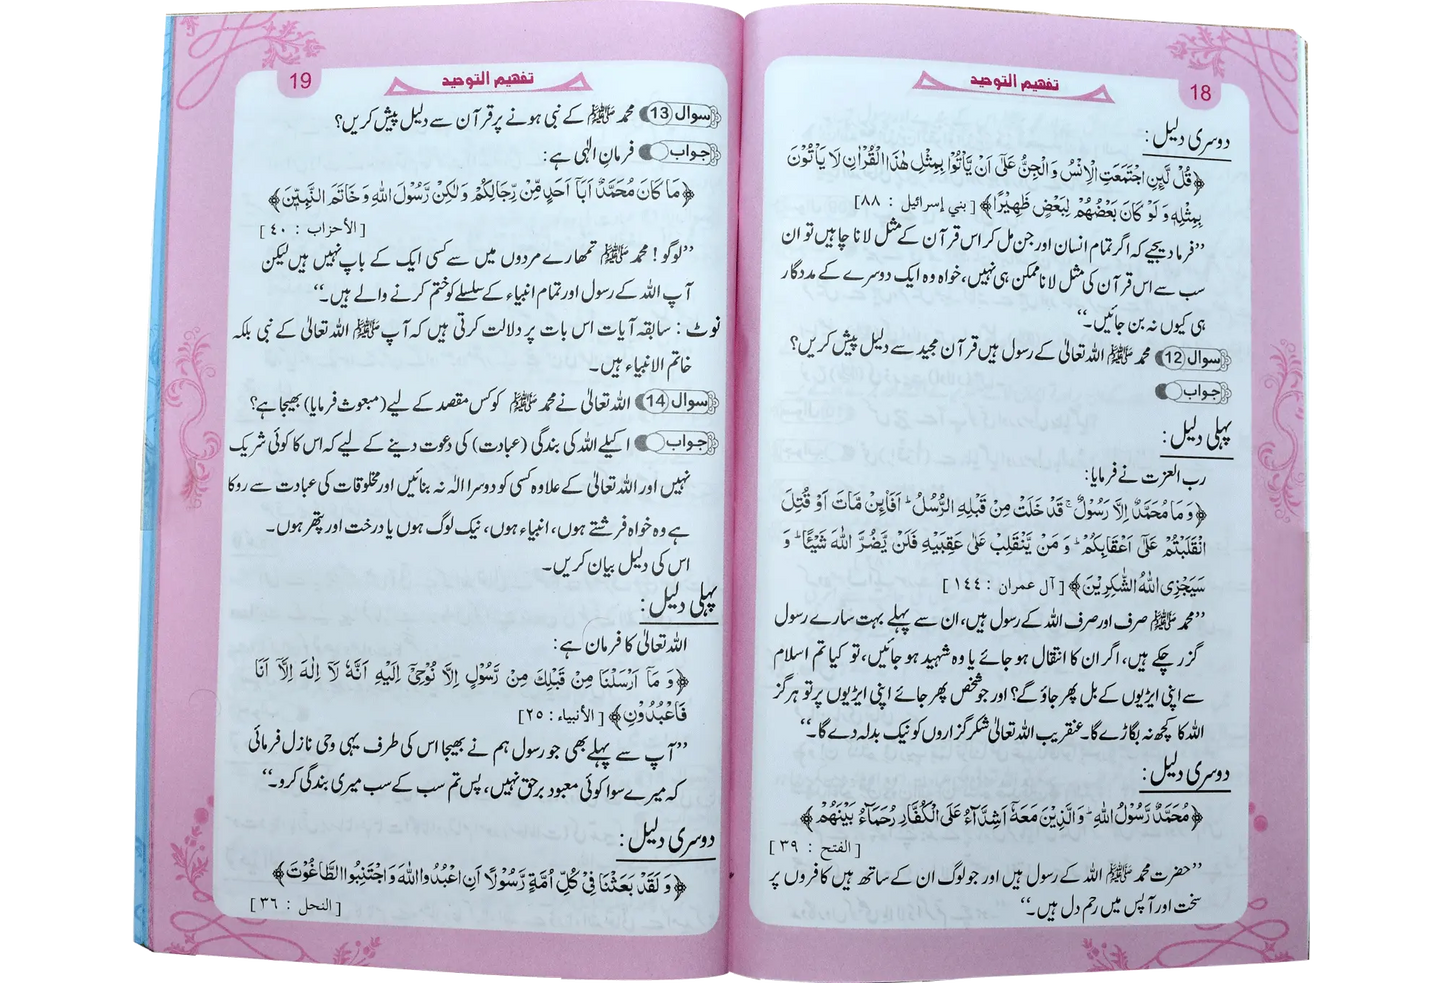 تفهيم التوحيد
18
دوسری دلیل:
﴿قُلْ لَّىِٕنِ اجْتَمَعَتِ الْاِنْسُ وَ الْجِنُّ عَلٰۤى اَنْ يَّاْتُوْا بِمِثْلِ هٰذَا الْقُرْاٰنِ لَا يَاْتُوْنَ
بِمِثْلِهٖ وَ لَوْ كَانَ بَعْضُهُمْ لِبَعْضٍ ظَهِيْرًا﴾ [بني إسرائيل : ٨٨]
’’فرما دیجیے کہ اگر تمام انسان اور جن مل کر اس قرآن کے مثل لانا چاہیں تو ان
سب سے اس قرآن کی مثل لانا ممکن ہی نہیں، خواہ وہ ایک دوسرے کے مددگار
ہی کیوں نہ بن جائیں۔‘‘
سوال 12 محمد ﷺ اللہ تعالیٰ کے رسول ہیں قرآن مجید سے دلیل پیش کریں؟
جواب
پہلی دلیل:
رب العزت نے فرمایا:
﴿وَ مَا مُحَمَّدٌ اِلَّا رَسُوْلٌ ۚ قَدْ خَلَتْ مِنْ قَبْلِهِ الرُّسُلُ ؕ اَفَاۡىِٕنْ مَّاتَ اَوْ قُتِلَ
انْقَلَبْتُمْ عَلٰۤى اَعْقَابِكُمْ ؕ وَ مَنْ يَّنْقَلِبْ عَلٰى عَقِبَيْهِ فَلَنْ يَّضُرَّ اللّٰهَ شَيْـًٔا ؕ وَ
سَيَجْزِى اللّٰهُ الشّٰكِرِيْنَ﴾ [آل عمران : ١٤٤]
’’محمد ﷺ صرف اور صرف اللہ کے رسول ہیں، ان سے پہلے بہت سارے رسول
گزر چکے ہیں، اگر ان کا انتقال ہو جائے یا وہ شہید ہو جائیں، تو کیا تم اسلام
سے اپنی ایڑیوں کے بل پھر جاؤ گے؟ اور جو شخص پھر جائے اپنی ایڑیوں پر تو ہرگز
اللہ کا کچھ نہ بگاڑے گا۔ عنقریب اللہ تعالیٰ شکر گزاروں کو نیک بدلہ دے گا۔‘‘
دوسری دلیل:
﴿مُحَمَّدٌ رَّسُوْلُ اللّٰهِ ؕ وَ الَّذِيْنَ مَعَهٗۤ اَشِدَّآءُ عَلَى الْكُفَّارِ رُحَمَآءُ بَيْنَهُمْ﴾
[الفتح : ٣٩]
’’حضرت محمد ﷺ اللہ کے رسول ہیں اور جو لوگ ان کے ساتھ ہیں کافروں پر
سخت اور آپس میں رحم دل ہیں۔‘‘
تفهيم التوحيد
19
سوال 13 محمد ﷺ کے نبی ہونے پر قرآن سے دلیل پیش کریں؟
جواب فرمانِ الٰہی ہے:
﴿مَا كَانَ مُحَمَّدٌ اَبَاۤ اَحَدٍ مِّنْ رِّجَالِكُمْ وَ لٰكِنْ رَّسُوْلَ اللّٰهِ وَ خَاتَمَ النَّبِيّٖنَ﴾
[الأحزاب : ٤٠]
’’لوگو! محمد ﷺ تمھارے مردوں میں سے کسی ایک کے باپ نہیں ہیں لیکن
آپ اللہ کے رسول اور تمام انبیاء کے سلسلے کو ختم کرنے والے ہیں۔‘‘
نوٹ : سابقہ آیات اس بات پر دلالت کرتی ہیں کہ آپ ﷺ اللہ تعالیٰ کے نبی بلکہ
خاتم الانبیاء ہیں۔
سوال 14 اللہ تعالیٰ نے محمد ﷺ کو کس مقصد کے لیے (مبعوث فرمایا) بھیجا ہے؟
جواب اکیلے اللہ کی بندگی (عبادت) کی دعوت دینے کے لیے کہ اس کا کوئی شریک
نہیں اور اللہ تعالیٰ کے علاوہ کسی کو دوسرا الٰہ نہ بنائیں اور مخلوقات کی عبادت سے روکا
ہے وہ خواہ فرشتے ہوں، انبیاء ہوں، نیک لوگ ہوں یا درخت اور پتھر ہوں۔
اس کی دلیل بیان کریں۔
پہلی دلیل:
اللہ تعالیٰ کا فرمان ہے:
﴿وَ مَاۤ اَرْسَلْنَا مِنْ قَبْلِكَ مِنْ رَّسُوْلٍ اِلَّا نُوْحِيْۤ اِلَيْهِ اَنَّهٗ لَاۤ اِلٰهَ اِلَّاۤ اَنَا
فَاعْبُدُوْنِ﴾ [الأنبياء : ٢٥]
’’آپ سے پہلے بھی جو رسول ہم نے بھیجا اس کی طرف یہی وحی نازل فرمائی
کہ میرے سوا کوئی معبود برحق نہیں، پس تم سب کے سب میری بندگی کرو۔‘‘
دوسری دلیل:
﴿وَ لَقَدْ بَعَثْنَا فِيْ كُلِّ اُمَّةٍ رَّسُوْلًا اَنِ اعْبُدُوا اللّٰهَ وَ اجْتَنِبُوا الطَّاغُوْتَ﴾
[النحل : ٣٦]